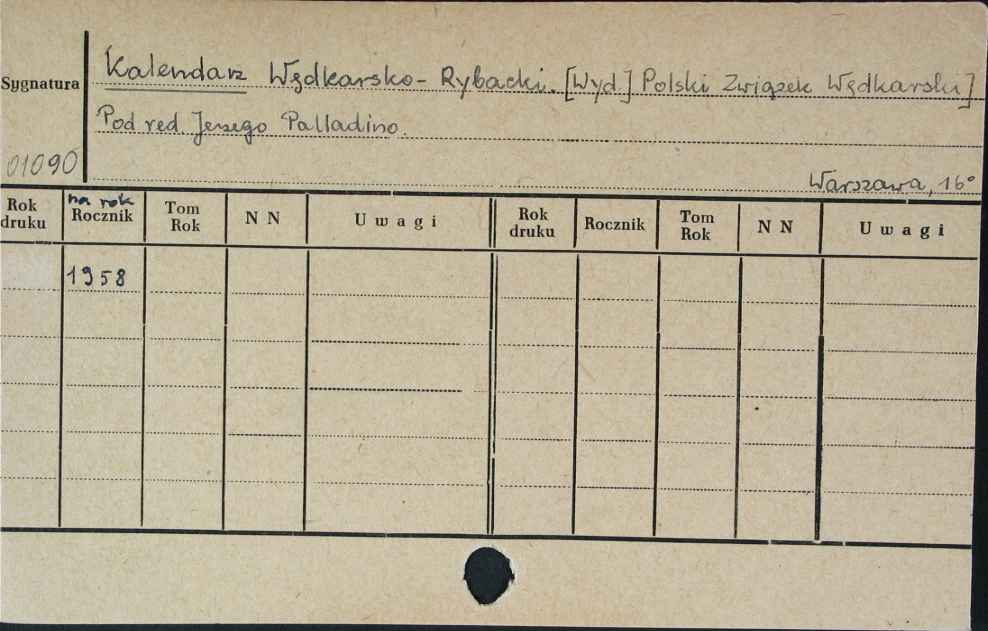 Sygnatura
Kalendarz Wędkarsko-Rybacki. [Wyd.] Polski Związek Wędkarski]
Pod red. Jerzego Palladino.
01090
Warszawa, 16°
Rok druku
na rok
Rocznik
Tom Rok
N N
Uwagi
Rok druku
Rocznik
Tom Rok
N N
Uwagi
1958